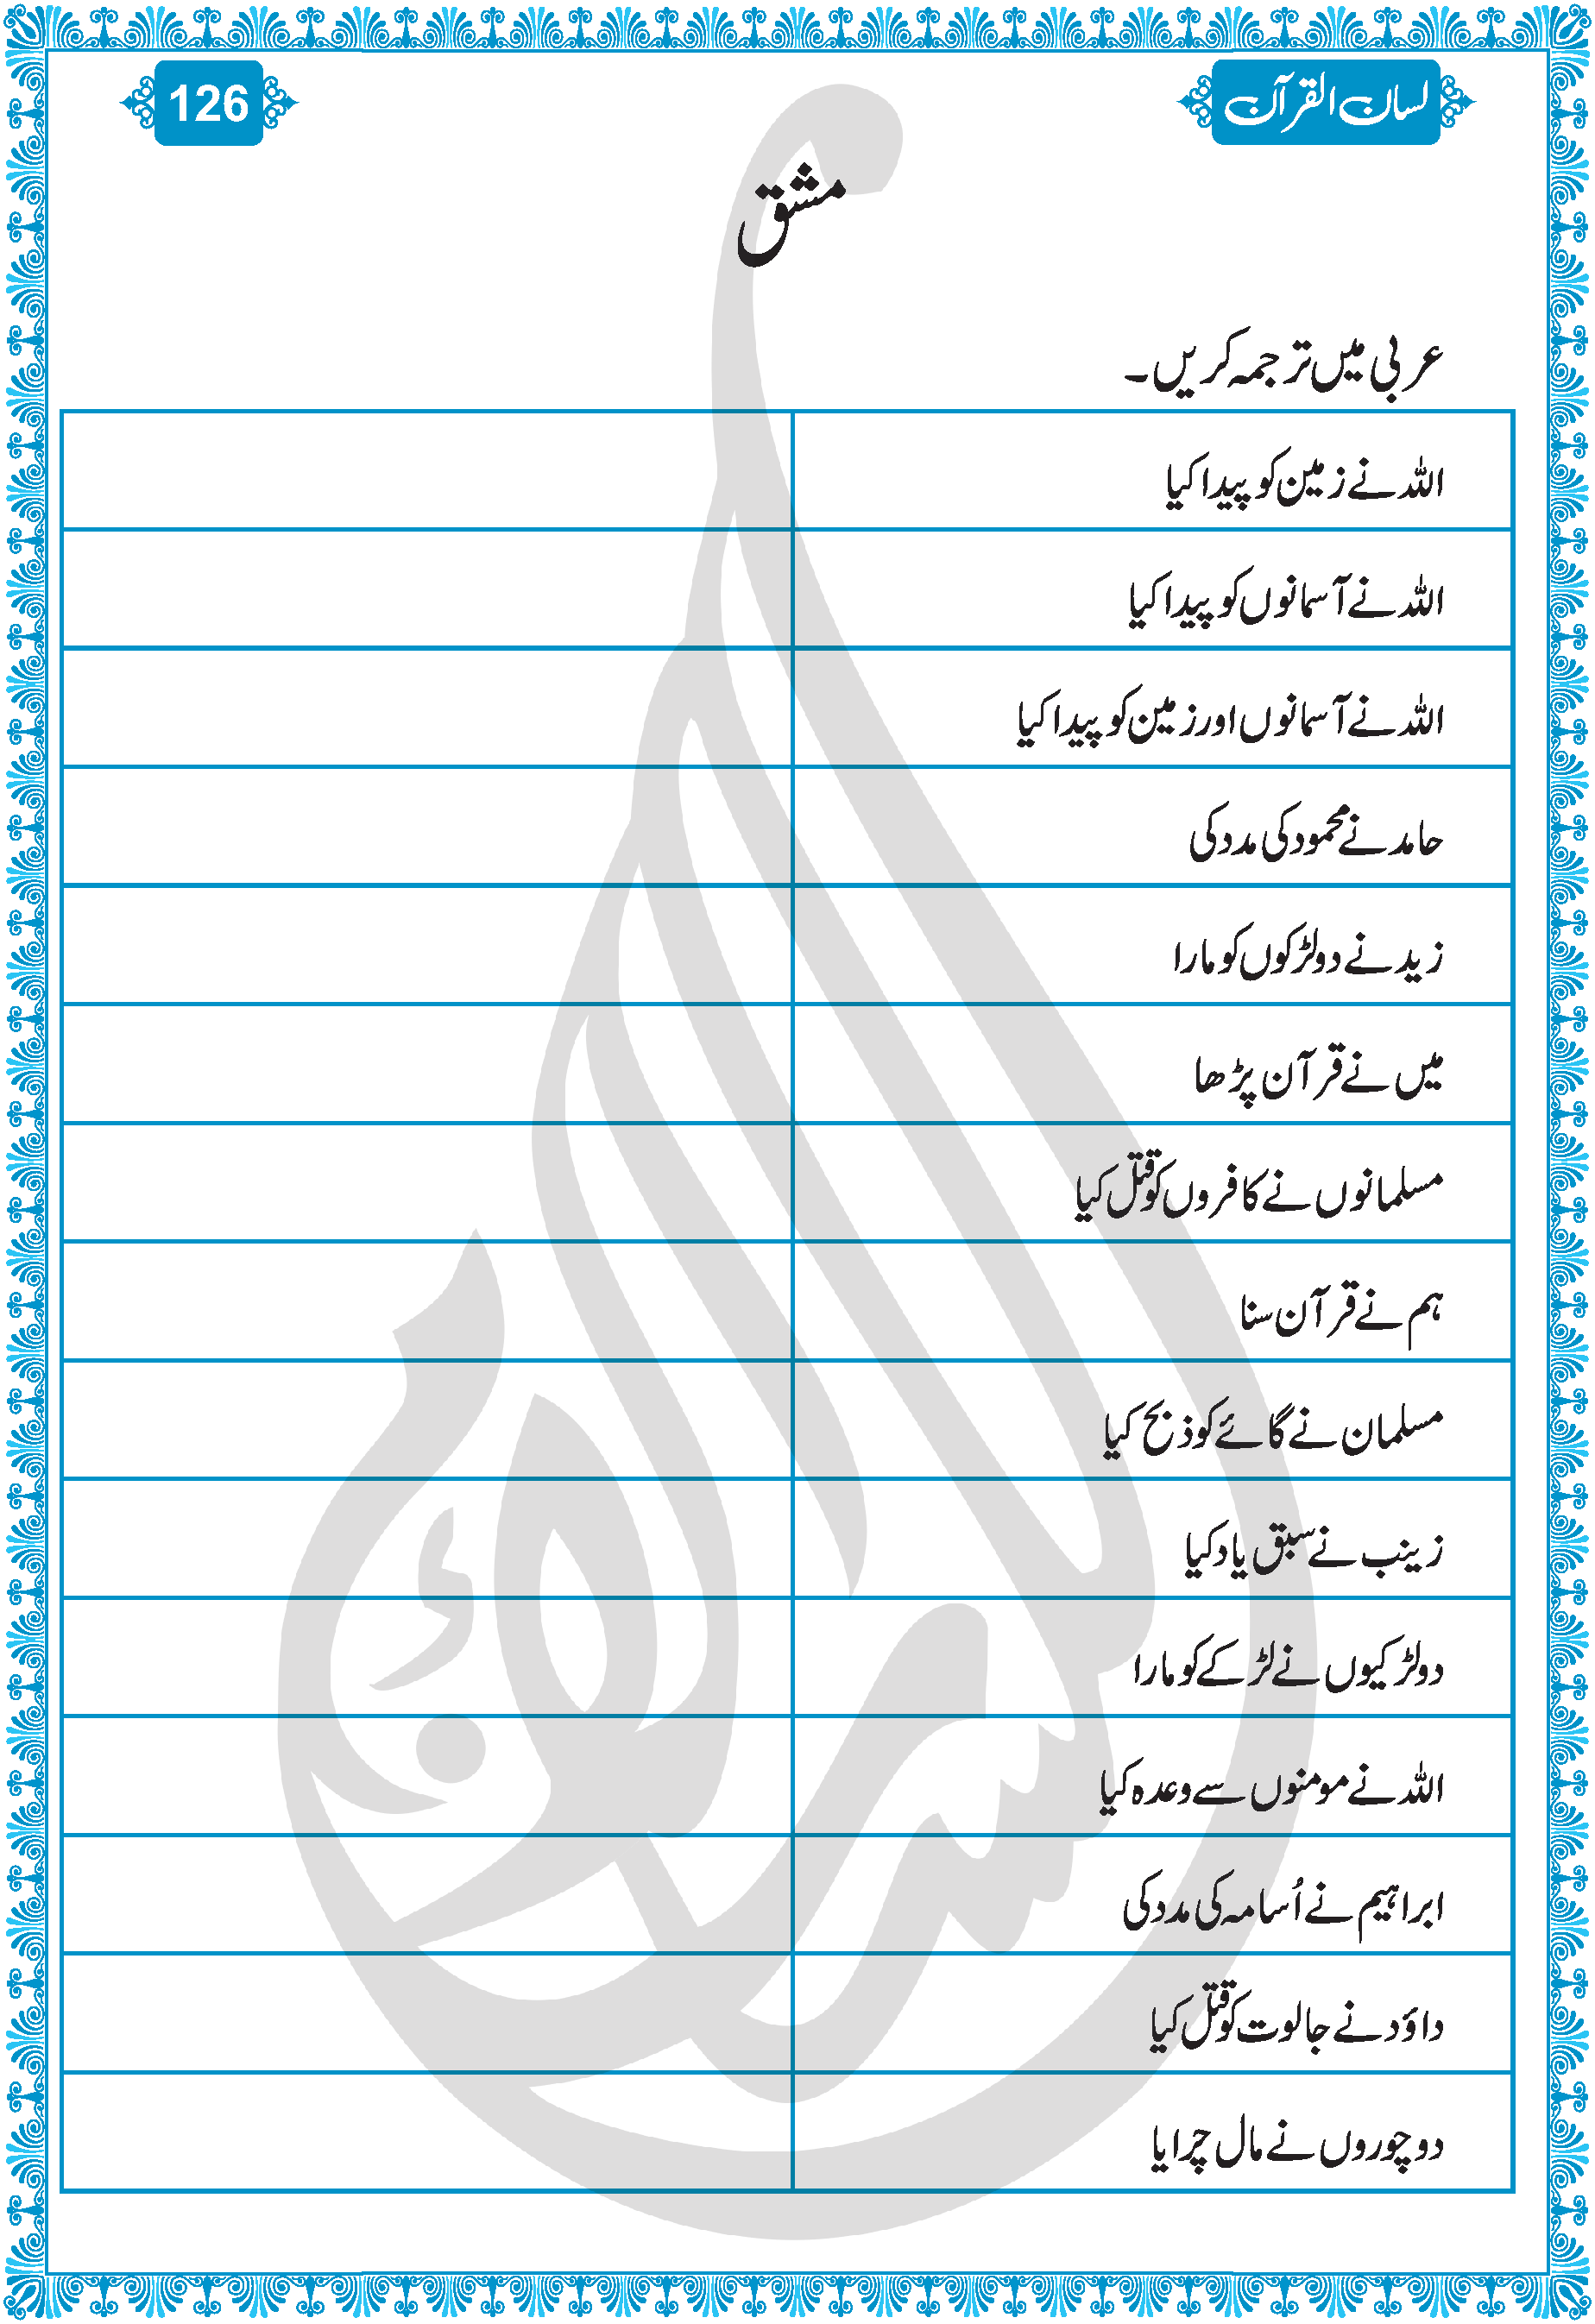 لسان القرآن
126
مشق
عربی میں ترجمہ کریں۔
اللہ نے زمین کو پیدا کیا
اللہ نے آسمانوں کو پیدا کیا
اللہ نے آسمانوں اور زمین کو پیدا کیا
حامد نے محمود کی مدد کی
زید نے دو لڑکوں کو مارا
میں نے قرآن پڑھا
مسلمانوں نے کافروں کو قتل کیا
ہم نے قرآن سنا
مسلمان نے گائے کو ذبح کیا
زینب نے سبق یاد کیا
دو لڑکیوں نے لڑکے کو مارا
اللہ نے مومنوں سے وعدہ کیا
ابراہیم نے اُسامہ کی مدد کی
داؤد نے جالوت کو قتل کیا
دو چوروں نے مال چرایا